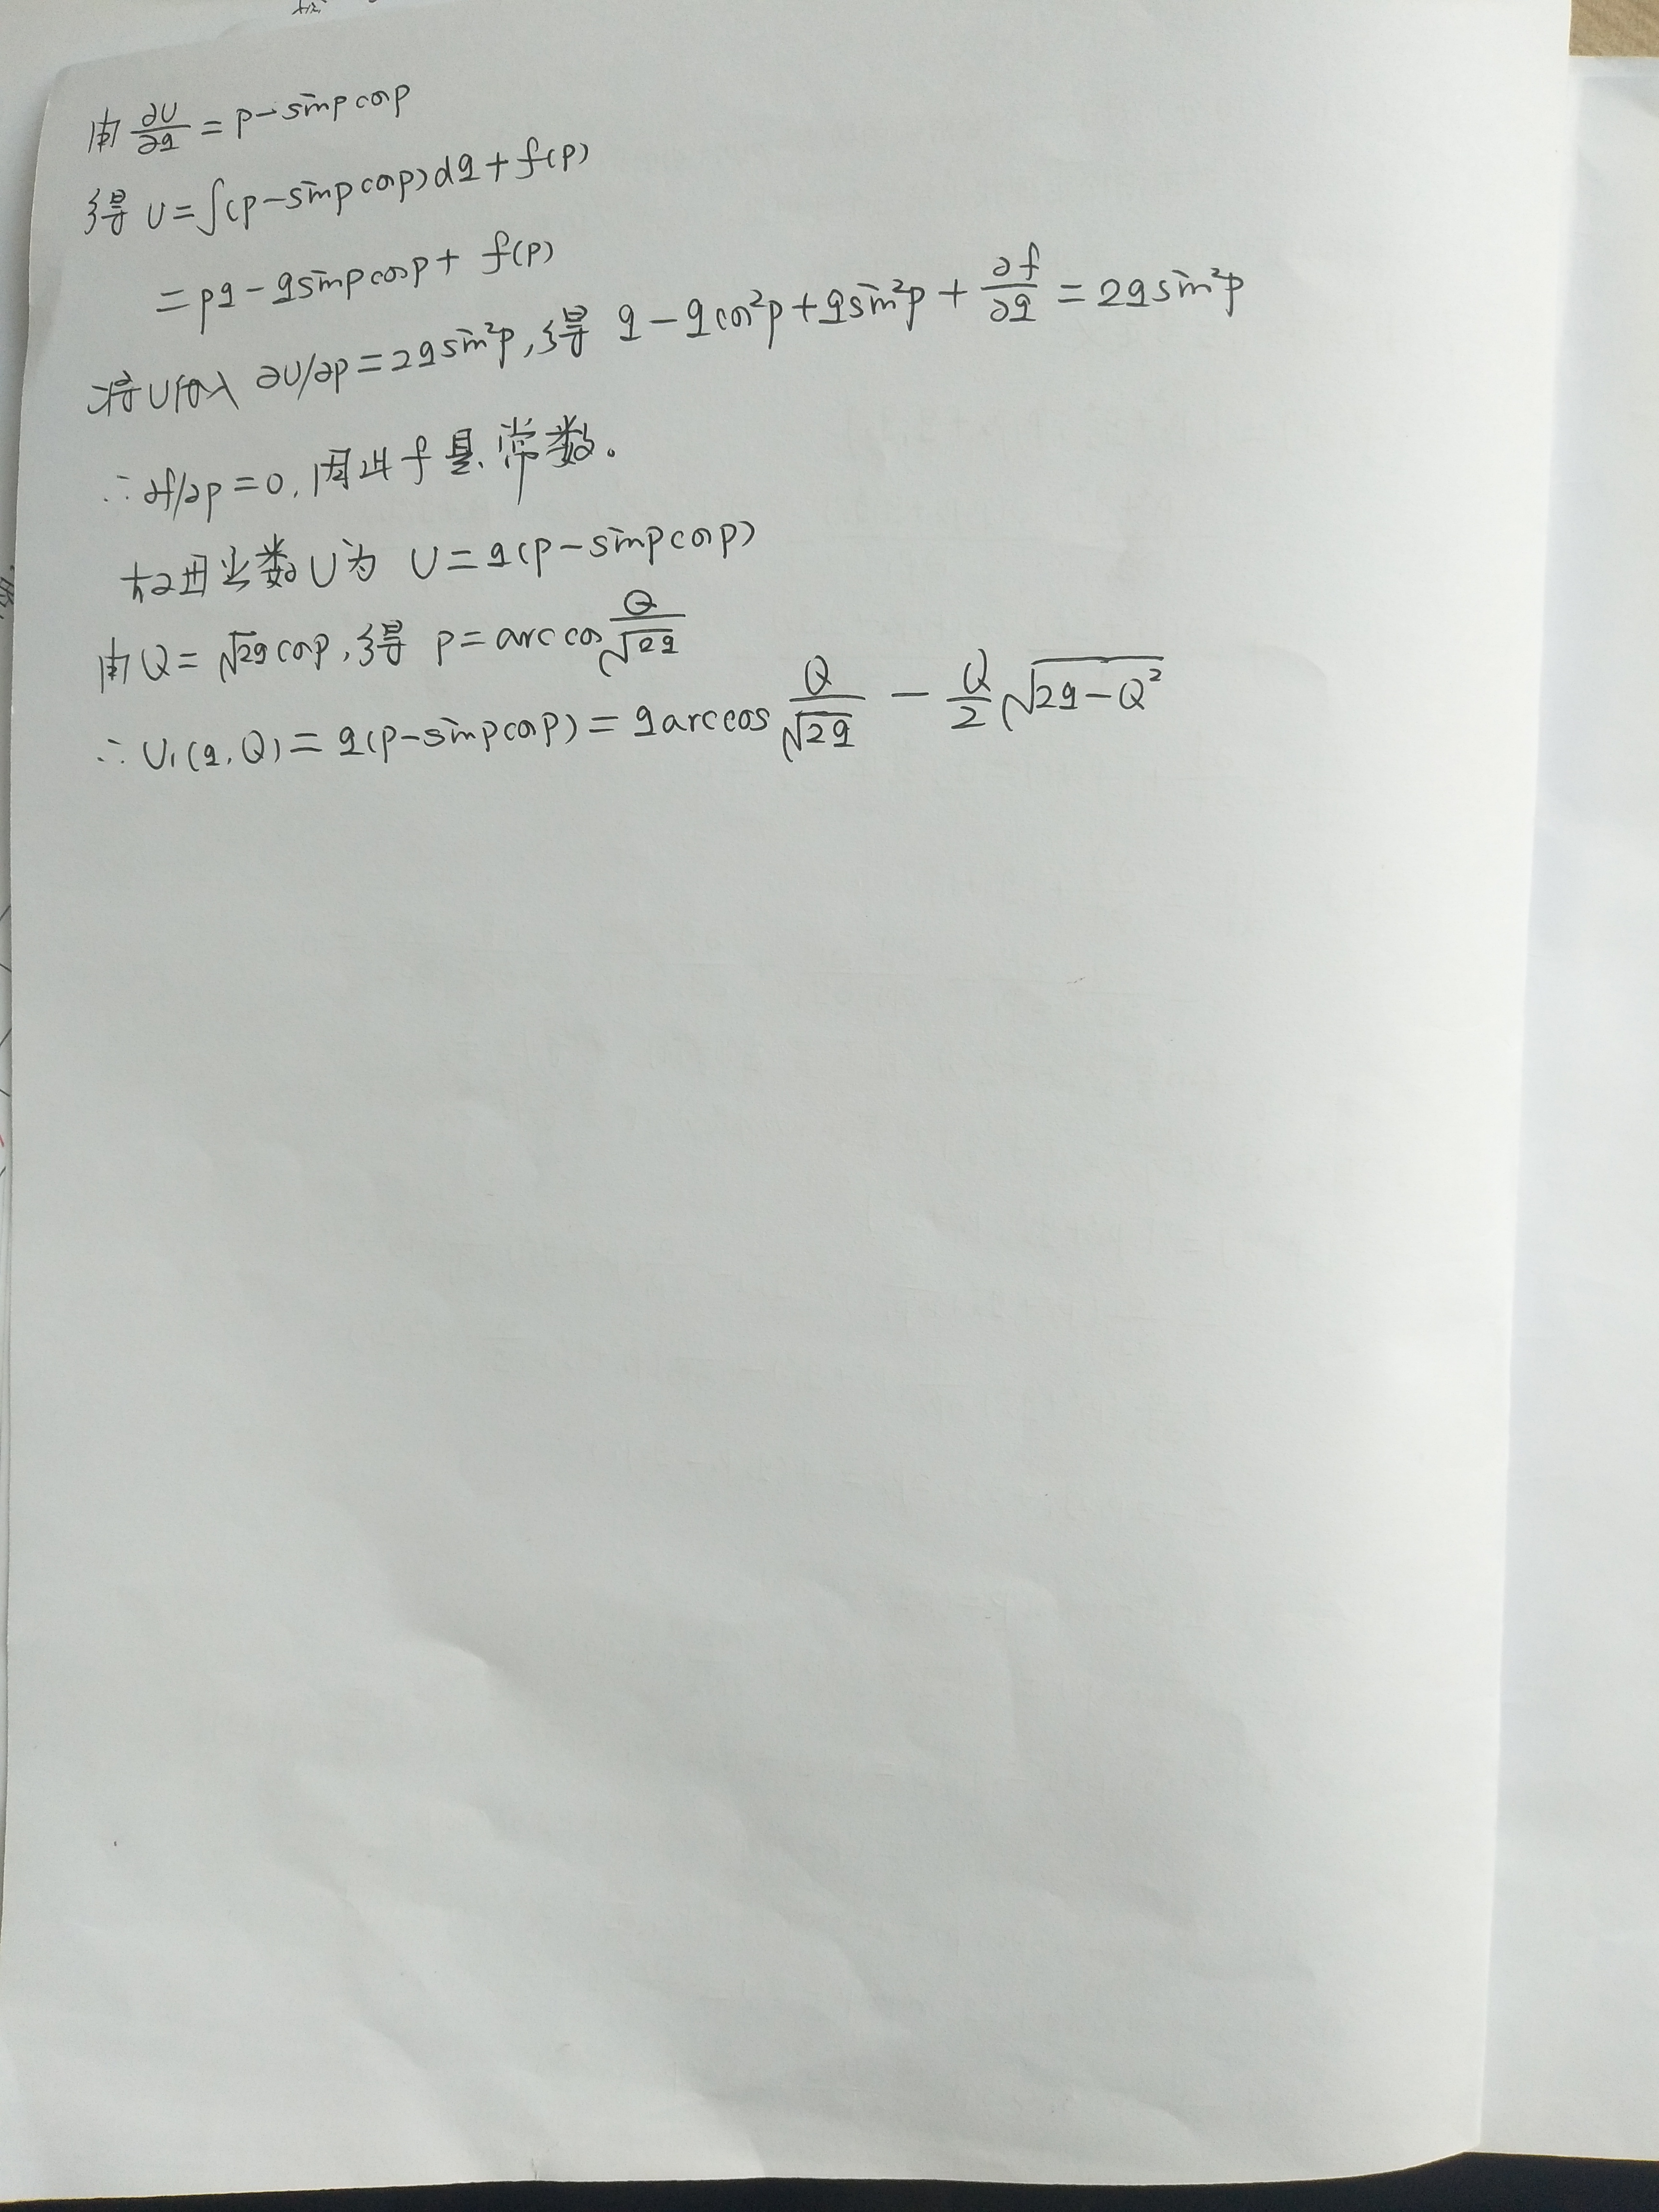 由 ∂U/∂q = p - sinp cosp
得 U = ∫(p - sinp cosp)dq + f(p)
= pq - q sinp cosp + f(p)
将U代入 ∂U/∂p = 2q sin²p, 得 q - q cos²p + q sin²p + ∂f/∂q = 2q sin²p
∴ ∂f/∂p = 0, 因此 f 是常数。
母函数U为 U = q(p - sinp cosp)
由Q = √2q cosp, 得 p = arc cos Q/√2q
∴ U₁(q, Q) = q(p - sinp cosp) = q arc cos Q/√2q - Q/2 √2q - Q²